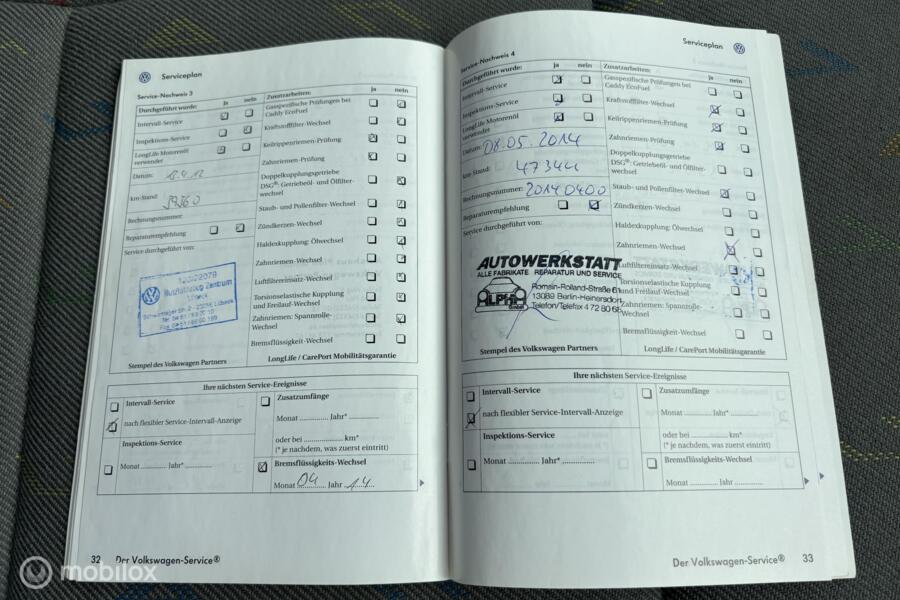 Serviceplan
Service-Nachweis 3
Durchgeführt wurde: ja nein
Intervall-Service
Inspektions-Service
LongLife Motorenöl
verwendet
Datum:
km-Stand:
Rechnungsnummer:
Reparaturempfehlung
Service durchgeführt von:
Nutzfahrzeug Zentrum
Stempel des Volkswagen Partners
Zusatzarbeiten: ja nein
Gasspezifische Prüfungen bei
Caddy EcoFuel
Kraftstofffilter-Wechsel
Keilrippenriemen-Prüfung
Zahnriemen-Prüfung
Doppelkupplungsgetriebe
DSG®: Getriebeöl- und Ölfilter-
wechsel
Staub- und Pollenfilter-Wechsel
Zündkerzen-Wechsel
Haldexkupplung: Ölwechsel
Zahnriemen-Wechsel
Luftfiltereinsatz-Wechsel
Torsionselastische Kupplung
und Freilauf-Wechsel
Zahnriemen: Spannrolle-
Wechsel
Bremsflüssigkeits-Wechsel
LongLife / CarePort Mobilitätsgarantie
Ihre nächsten Service-Ereignisse
Intervall-Service
nach flexibler Service-Intervall-Anzeige
Inspektions-Service
Monat ............ Jahr* ............
Zusatzumfänge
Monat ............ Jahr* ............
oder bei ............ km*
(* je nachdem, was zuerst eintritt)
Bremsflüssigkeits-Wechsel
Monat 04 Jahr 14
32 Der Volkswagen-Service®
Serviceplan
Service-Nachweis 4
Durchgeführt wurde: ja nein
Intervall-Service
Inspektions-Service
LongLife Motorenöl
verwendet
Datum: 08.05.2014
km Stand: 47344
Rechnungsnummer: 20140400
Reparaturempfehlung
Service durchgeführt von:
AUTOWERKSTATT
ALLE FABRIKATE REPARATUR UND SERVICE
ALPHA
GmbH
Romain-Rolland-Straße
13089 Berlin-Heinersdorf
Telefon/Telefax 4 72 80 66
Stempel des Volkswagen Partners
Zusatzarbeiten: ja nein
Gasspezifische Prüfungen bei
Caddy EcoFuel
Kraftstofffilter-Wechsel
Keilrippenriemen-Prüfung
Zahnriemen-Prüfung
Doppelkupplungsgetriebe
DSG®: Getriebeöl- und Ölfilter-
wechsel
Staub- und Pollenfilter-Wechsel
Zündkerzen-Wechsel
Haldexkupplung: Ölwechsel
Zahnriemen-Wechsel
Luftfiltereinsatz-Wechsel
Torsionselastische Kupplung
und Freilauf-Wechsel
Zahnriemen: Spannrolle-
Wechsel
Bremsflüssigkeits-Wechsel
LongLife / CarePort Mobilitätsgarantie
Ihre nächsten Service-Ereignisse
Intervall-Service
nach flexibler Service-Intervall-Anzeige
Inspektions-Service
Monat ............ Jahr* ............
Zusatzumfänge
Monat ............ Jahr* ............
oder bei ............ km*
(* je nachdem, was zuerst eintritt)
Bremsflüssigkeits-Wechsel
Monat ............ Jahr ............
Der Volkswagen-Service® 33
mobilox